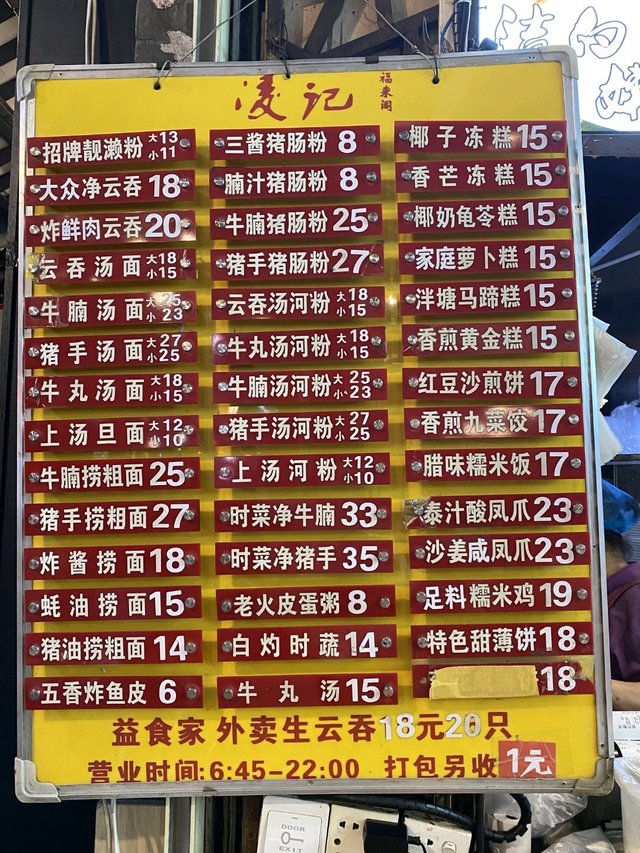 凌记 福来阁
招牌靓濑粉 大13 小11
大众净云吞18
炸鲜肉云吞20
云吞汤面 大18 小15
牛腩汤面 大25 小23
猪手汤面 大27 小25
牛丸汤面 大18 小15
上汤旦面 大12 小10
牛腩捞粗面25
猪手捞粗面27
炸酱捞面18
蚝油捞面15
猪油捞粗面14
五香炸鱼皮6
三酱猪肠粉8
腩汁猪肠粉8
牛腩猪肠粉25
猪手猪肠粉27
云吞汤河粉 大18 小15
牛丸汤河粉 大18 小15
牛腩汤河粉 大25 小23
猪手汤河粉 大27 小25
上汤河粉 大12 小10
时菜净牛腩33
时菜净猪手35
老火皮蛋粥8
白灼时蔬14
牛丸汤15
椰子冻糕15
香芒冻糕15
椰奶龟苓糕15
家庭萝卜糕15
泮塘马蹄糕15
香煎黄金糕15
红豆沙煎饼17
香煎九菜饺17
腊味糯米饭17
泰汁酸凤爪23
沙姜咸凤爪23
足料糯米鸡19
特色甜薄饼18
18
益食家 外卖生云吞18元20只
营业时间:6:45-22:00 打包另收1元
DOOR
EXIT